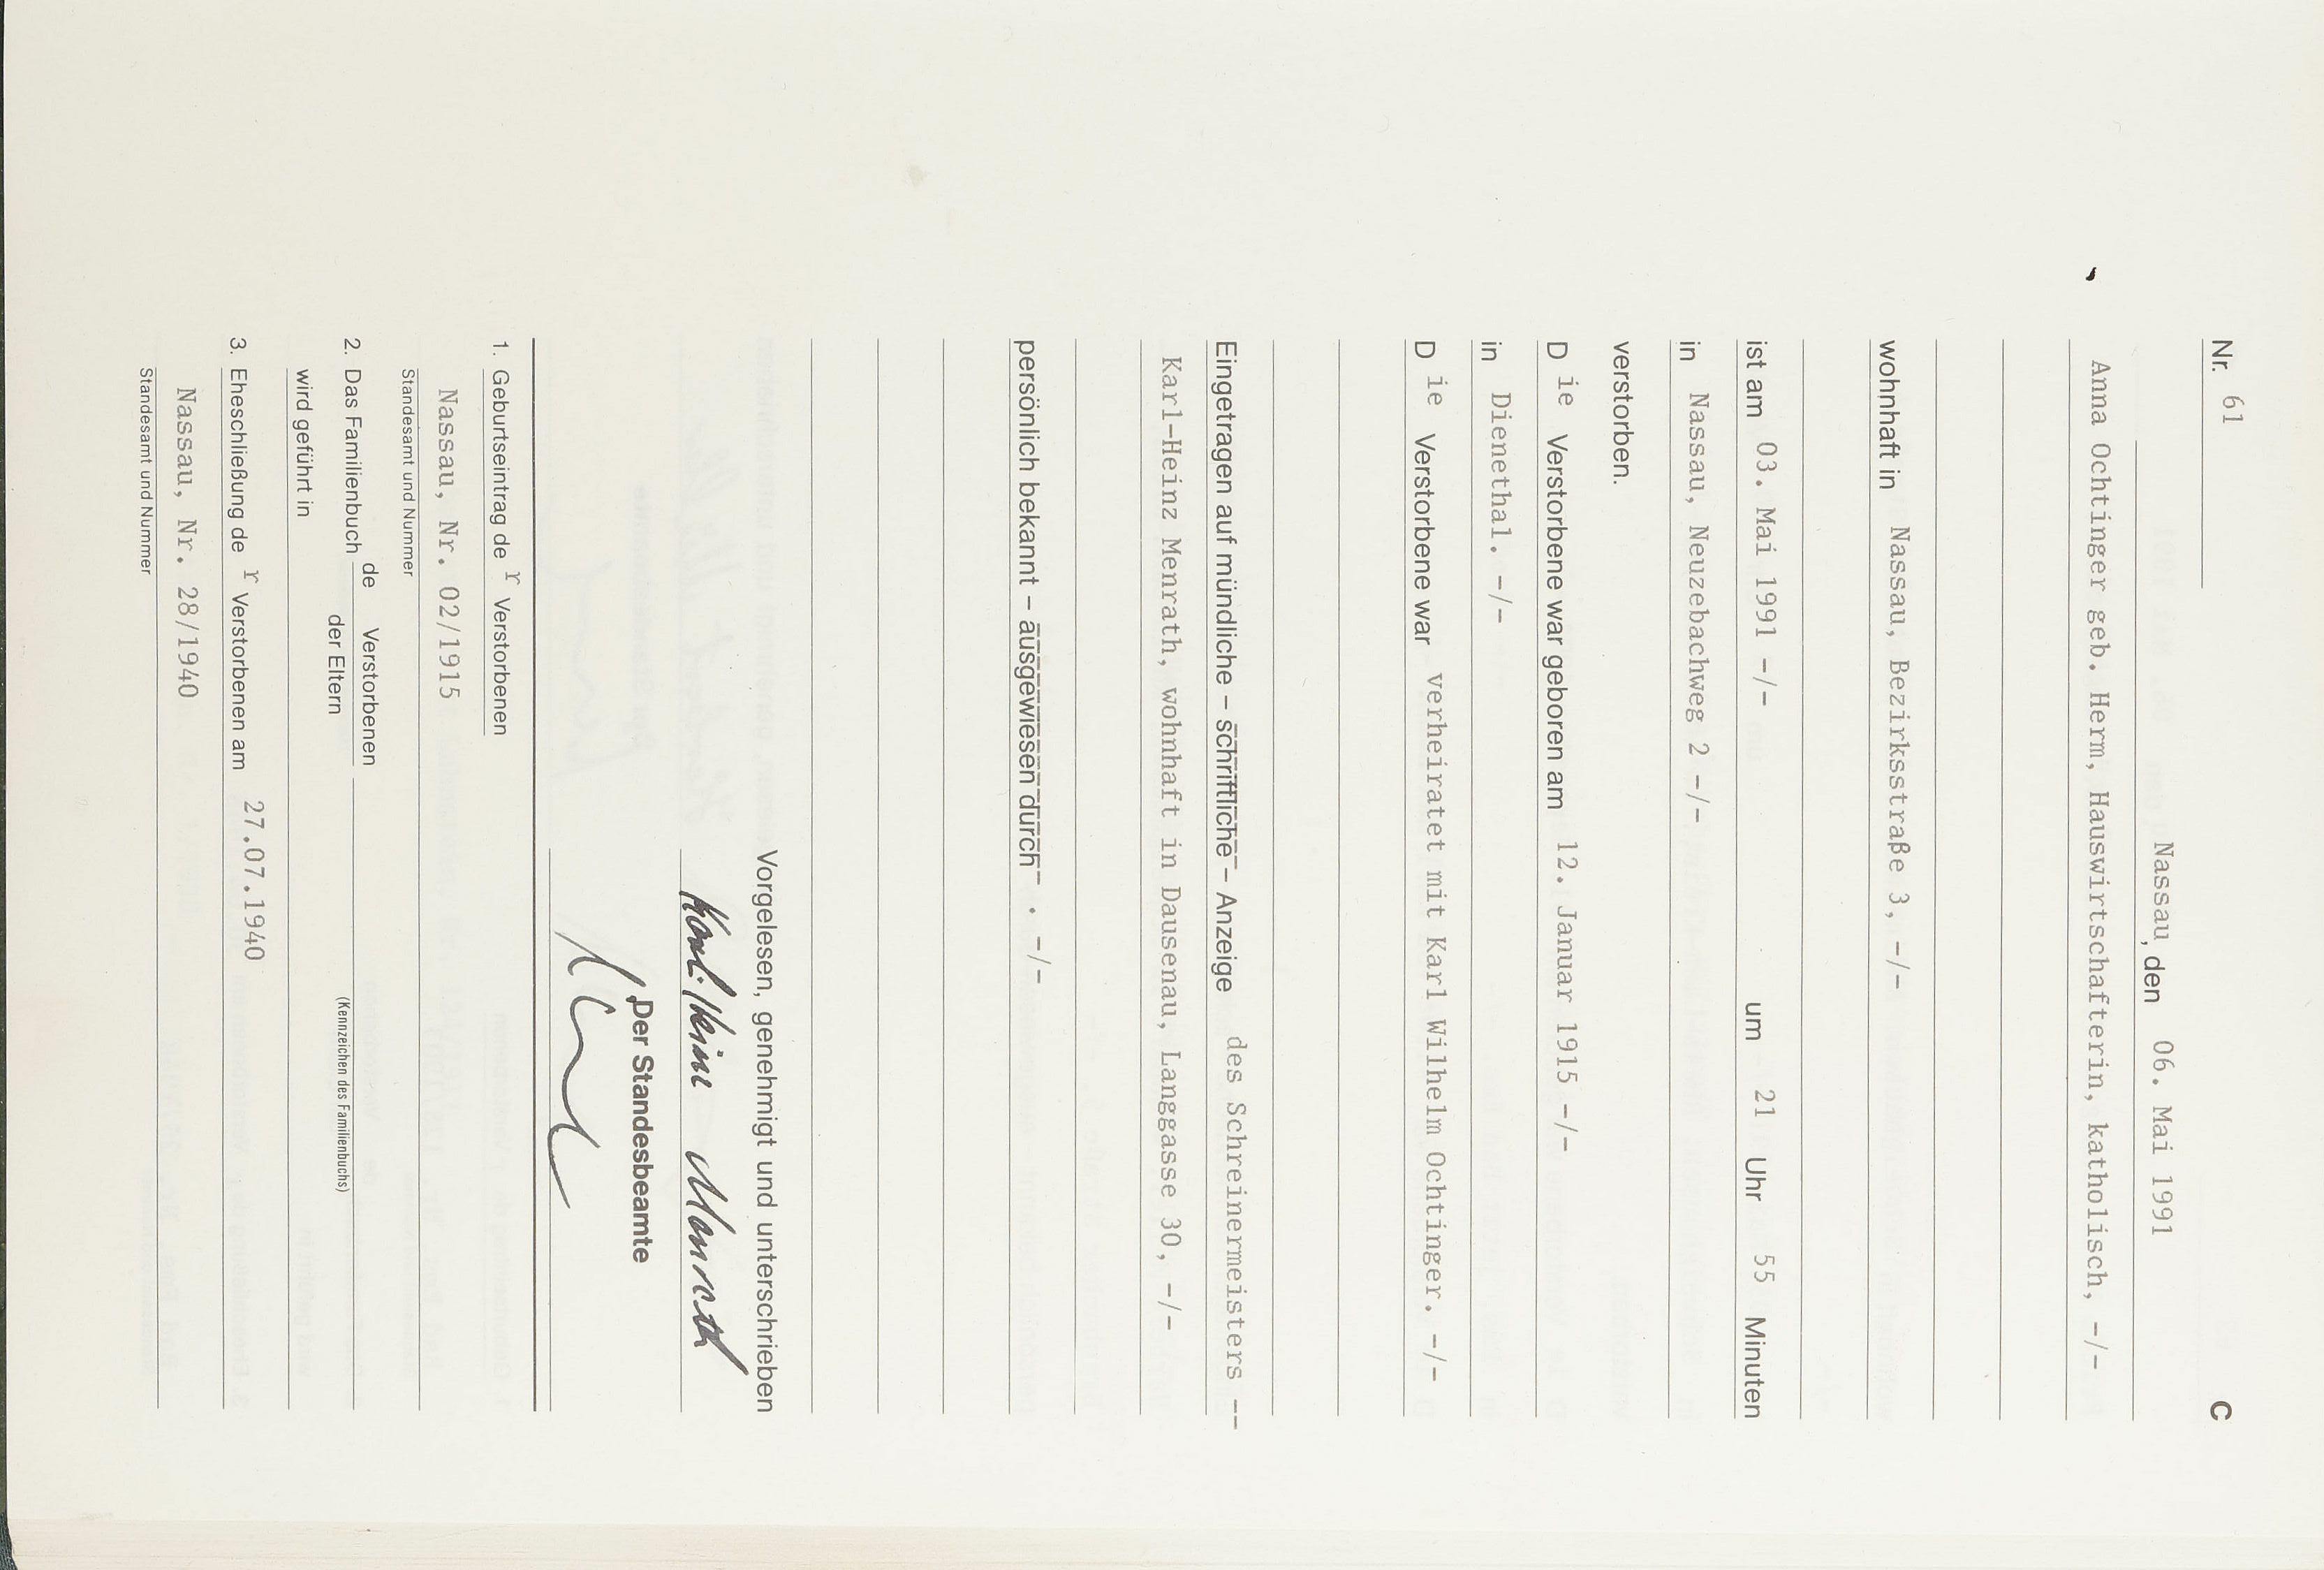 Nr. 61 C
Nassau, den 06. Mai 1991
Anna Ochtinger geb. Herm, Hauswirtschafterin, katholisch, -/-
wohnhaft in Nassau, Bezirksstraße 3, -/-
ist am 03. Mai 1991 -/- um 21 Uhr 55 Minuten
in Nassau, Neuzebachweg 2 -/-
verstorben.
D ie Verstorbene war geboren am 12. Januar 1915 -/-
in Dienethal. -/-
D ie Verstorbene war verheiratet mit Karl Wilhelm Ochtinger. -/-
Eingetragen auf mündliche – schriftliche – Anzeige des Schreinermeisters --
Karl-Heinz Menrath, wohnhaft in Dausenau, Langgasse 30, -/-
persönlich bekannt – ausgewiesen durch . -/-
Vorgelesen, genehmigt und unterschrieben
Karl-Heinz Menrath
Der Standesbeamte
1. Geburtseintrag de r Verstorbenen
Nassau, Nr. 02/1915
Standesamt und Nummer
2. Das Familienbuch de Verstorbenen
der Eltern
(Kennzeichen des Familienbuchs)
wird geführt in
3. Eheschließung de r Verstorbenen am 27.07.1940
Nassau, Nr. 28/1940
Standesamt und Nummer